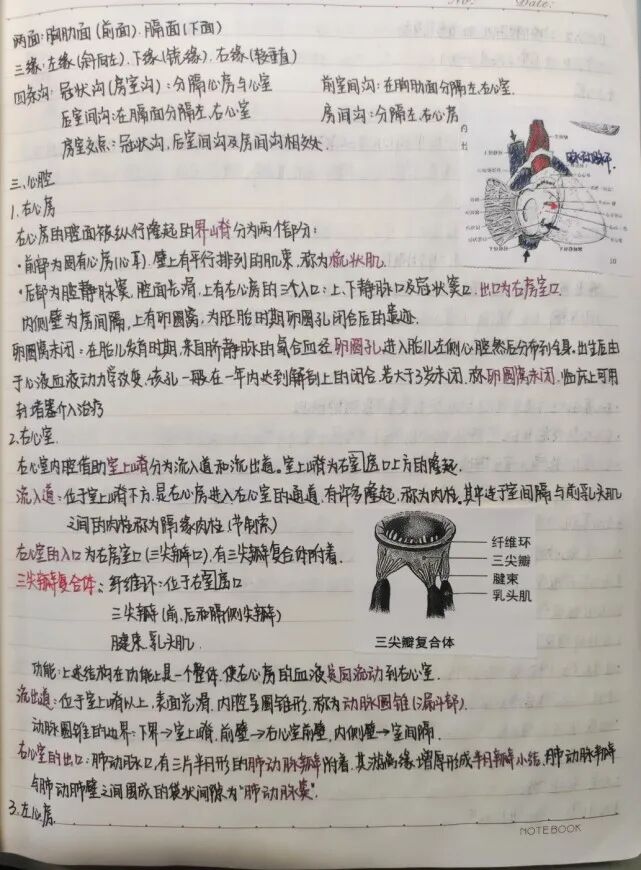 No: Date:
两面:胸肋面(前面).膈面(下面)
三缘:左缘(斜向左).下缘(锐缘).右缘(较垂直)
四条沟:冠状沟(房室沟):分隔心房与心室 前室间沟:在胸肋面分隔左、右心室.
后室间沟:在膈面分隔左、右心室 房间沟:分隔左、右心房
房室交点:冠状沟,后室间沟及房间沟相交处.
三.心腔
1.右心房
右心房的腔面被纵行隆起的界嵴分为两个部分:
·前部为固有心房(心耳).壁上有平行排列的肌束,称为梳状肌.
·后部为腔静脉窦,腔面光滑,上有右心房的三个入口:上、下静脉口及冠状窦口.出口为右房室口.
内侧壁为房间隔,上有卵圆窝,为胚胎时期卵圆孔闭合后的遗迹.
卵圆窝未闭:在胎儿发育时期,来自脐静脉的氧合血经卵圆孔进入胎儿左侧心腔然后分布到全身.出生后由
于心液血液动力学改变,该孔一般在一年内达到解剖上的闭合.若大于3岁未闭,称卵圆窝未闭.临床上可用
封堵器介入治疗
2.右心室.
右心室内腔借助室上嵴分为流入道和流出道.室上嵴为右室口上方的隆起.
流入道:位于室上嵴下方,是右心房进入右心室的通道,有许多隆起,称为肉柱.其中连于室间隔与前乳头肌
之间的肉柱称为隔缘肉柱(节制索)
右心室的入口为右房室口(三尖瓣口),有三尖瓣复合体附着.
三尖瓣复合体:纤维环:位于右室口
三尖瓣(前,后和隔侧尖瓣)
腱束.乳头肌.
纤维环
三尖瓣
腱束
乳头肌
三尖瓣复合体
功能:上述结构在功能上是一个整体.使右心房的血液流动到右心室.
流出道:位于室上嵴以上,表面光滑,内腔呈圆锥形.称为动脉圆锥(漏斗部).
动脉圆锥的边界:下界→室上嵴.前壁→右心室前壁,内侧壁→室间隔.
右心室的出口:肺动脉口,有三片半月形的肺动脉瓣附着.其游离缘增厚形成半月瓣小结.肺动脉瓣
与肺动脉壁之间围成的袋状间隙为"肺动脉窦".
3.左心房.
NOTEBOOK